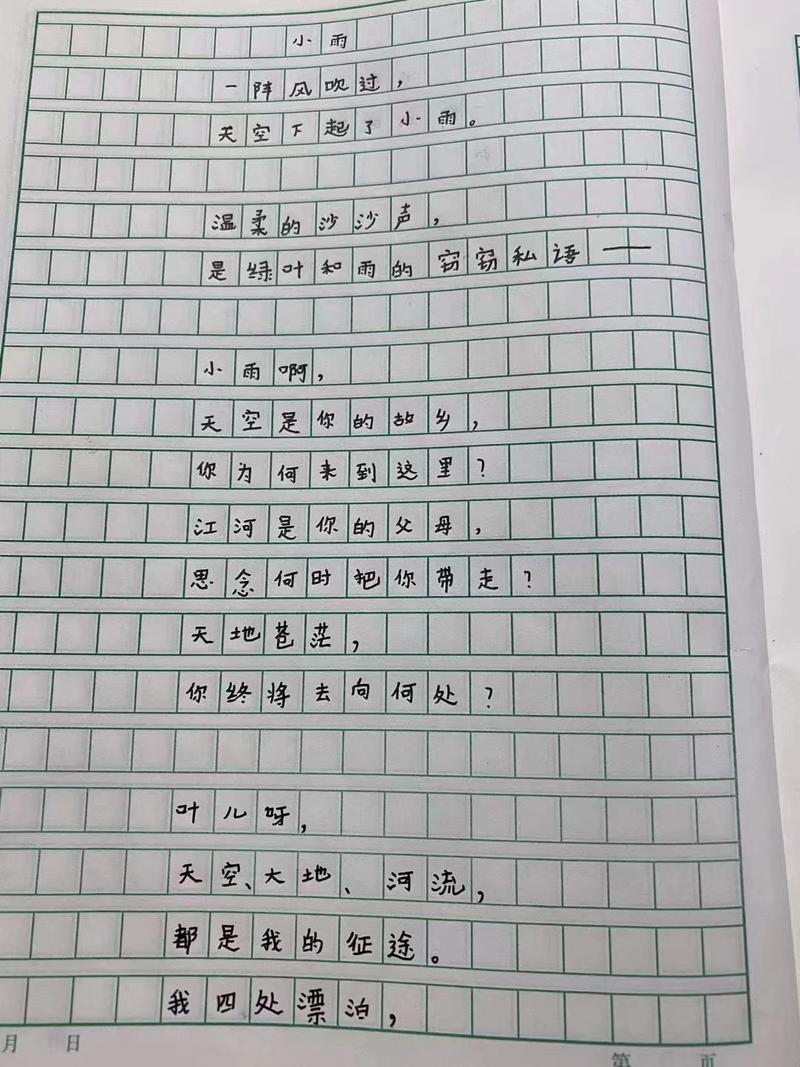 小雨
一阵风吹过，
天空下起了小雨。
温柔的沙沙声，
是绿叶和雨的窃窃私语——
小雨啊，
天空是你的故乡，
你为何来到这里？
江河是你的父母，
思念何时把你带走？
天地苍茫，
你终将去向何处？
叶儿呀，
天空、大地、河流，
都是我的征途。
我四处漂泊，
月 日
第 页